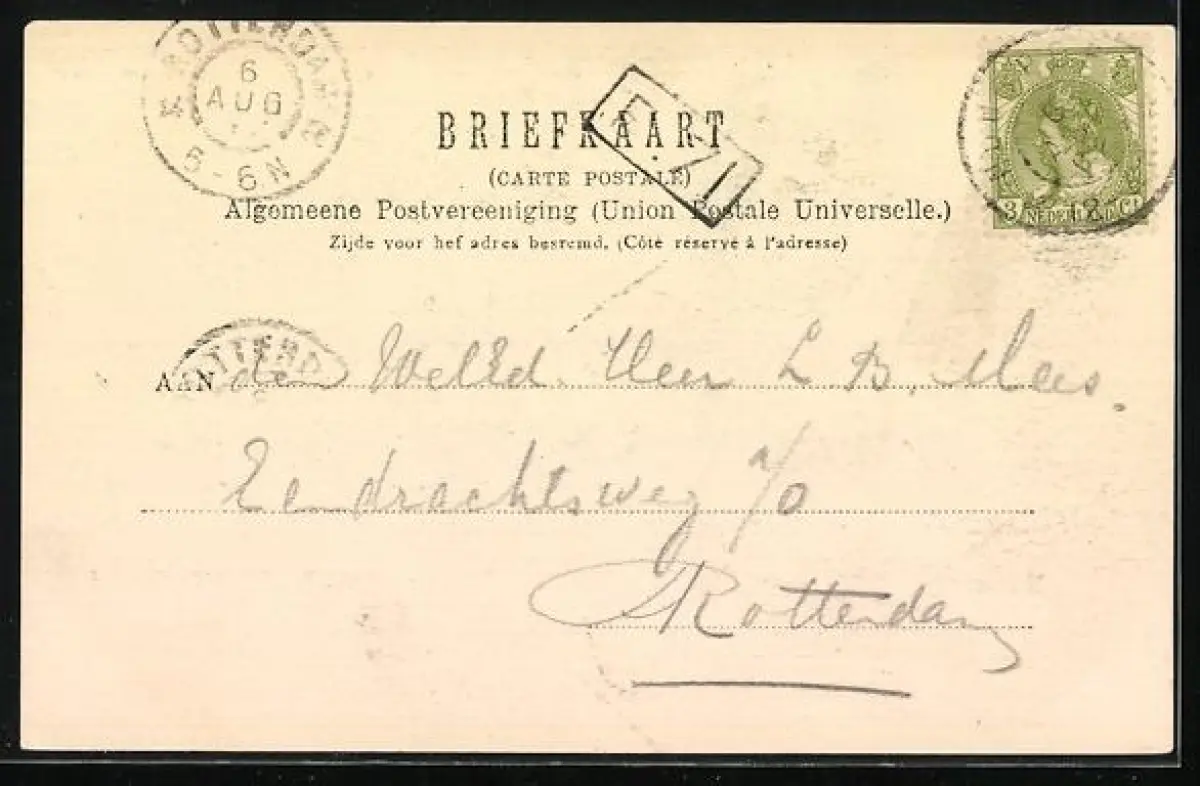 ROTTERDAM
6
AUG
6-6N
BRIEFKAART
(CARTE POSTALE)
Algemeene Postvereeniging (Union Postale Universelle.)
Zijde voor het adres bestemd. (Côté réservé à l'adresse)
3 NEDERLAND Ct
AAN den WelEd. Heer L B. Mees.
Eendrachtsweg
Rotterdam